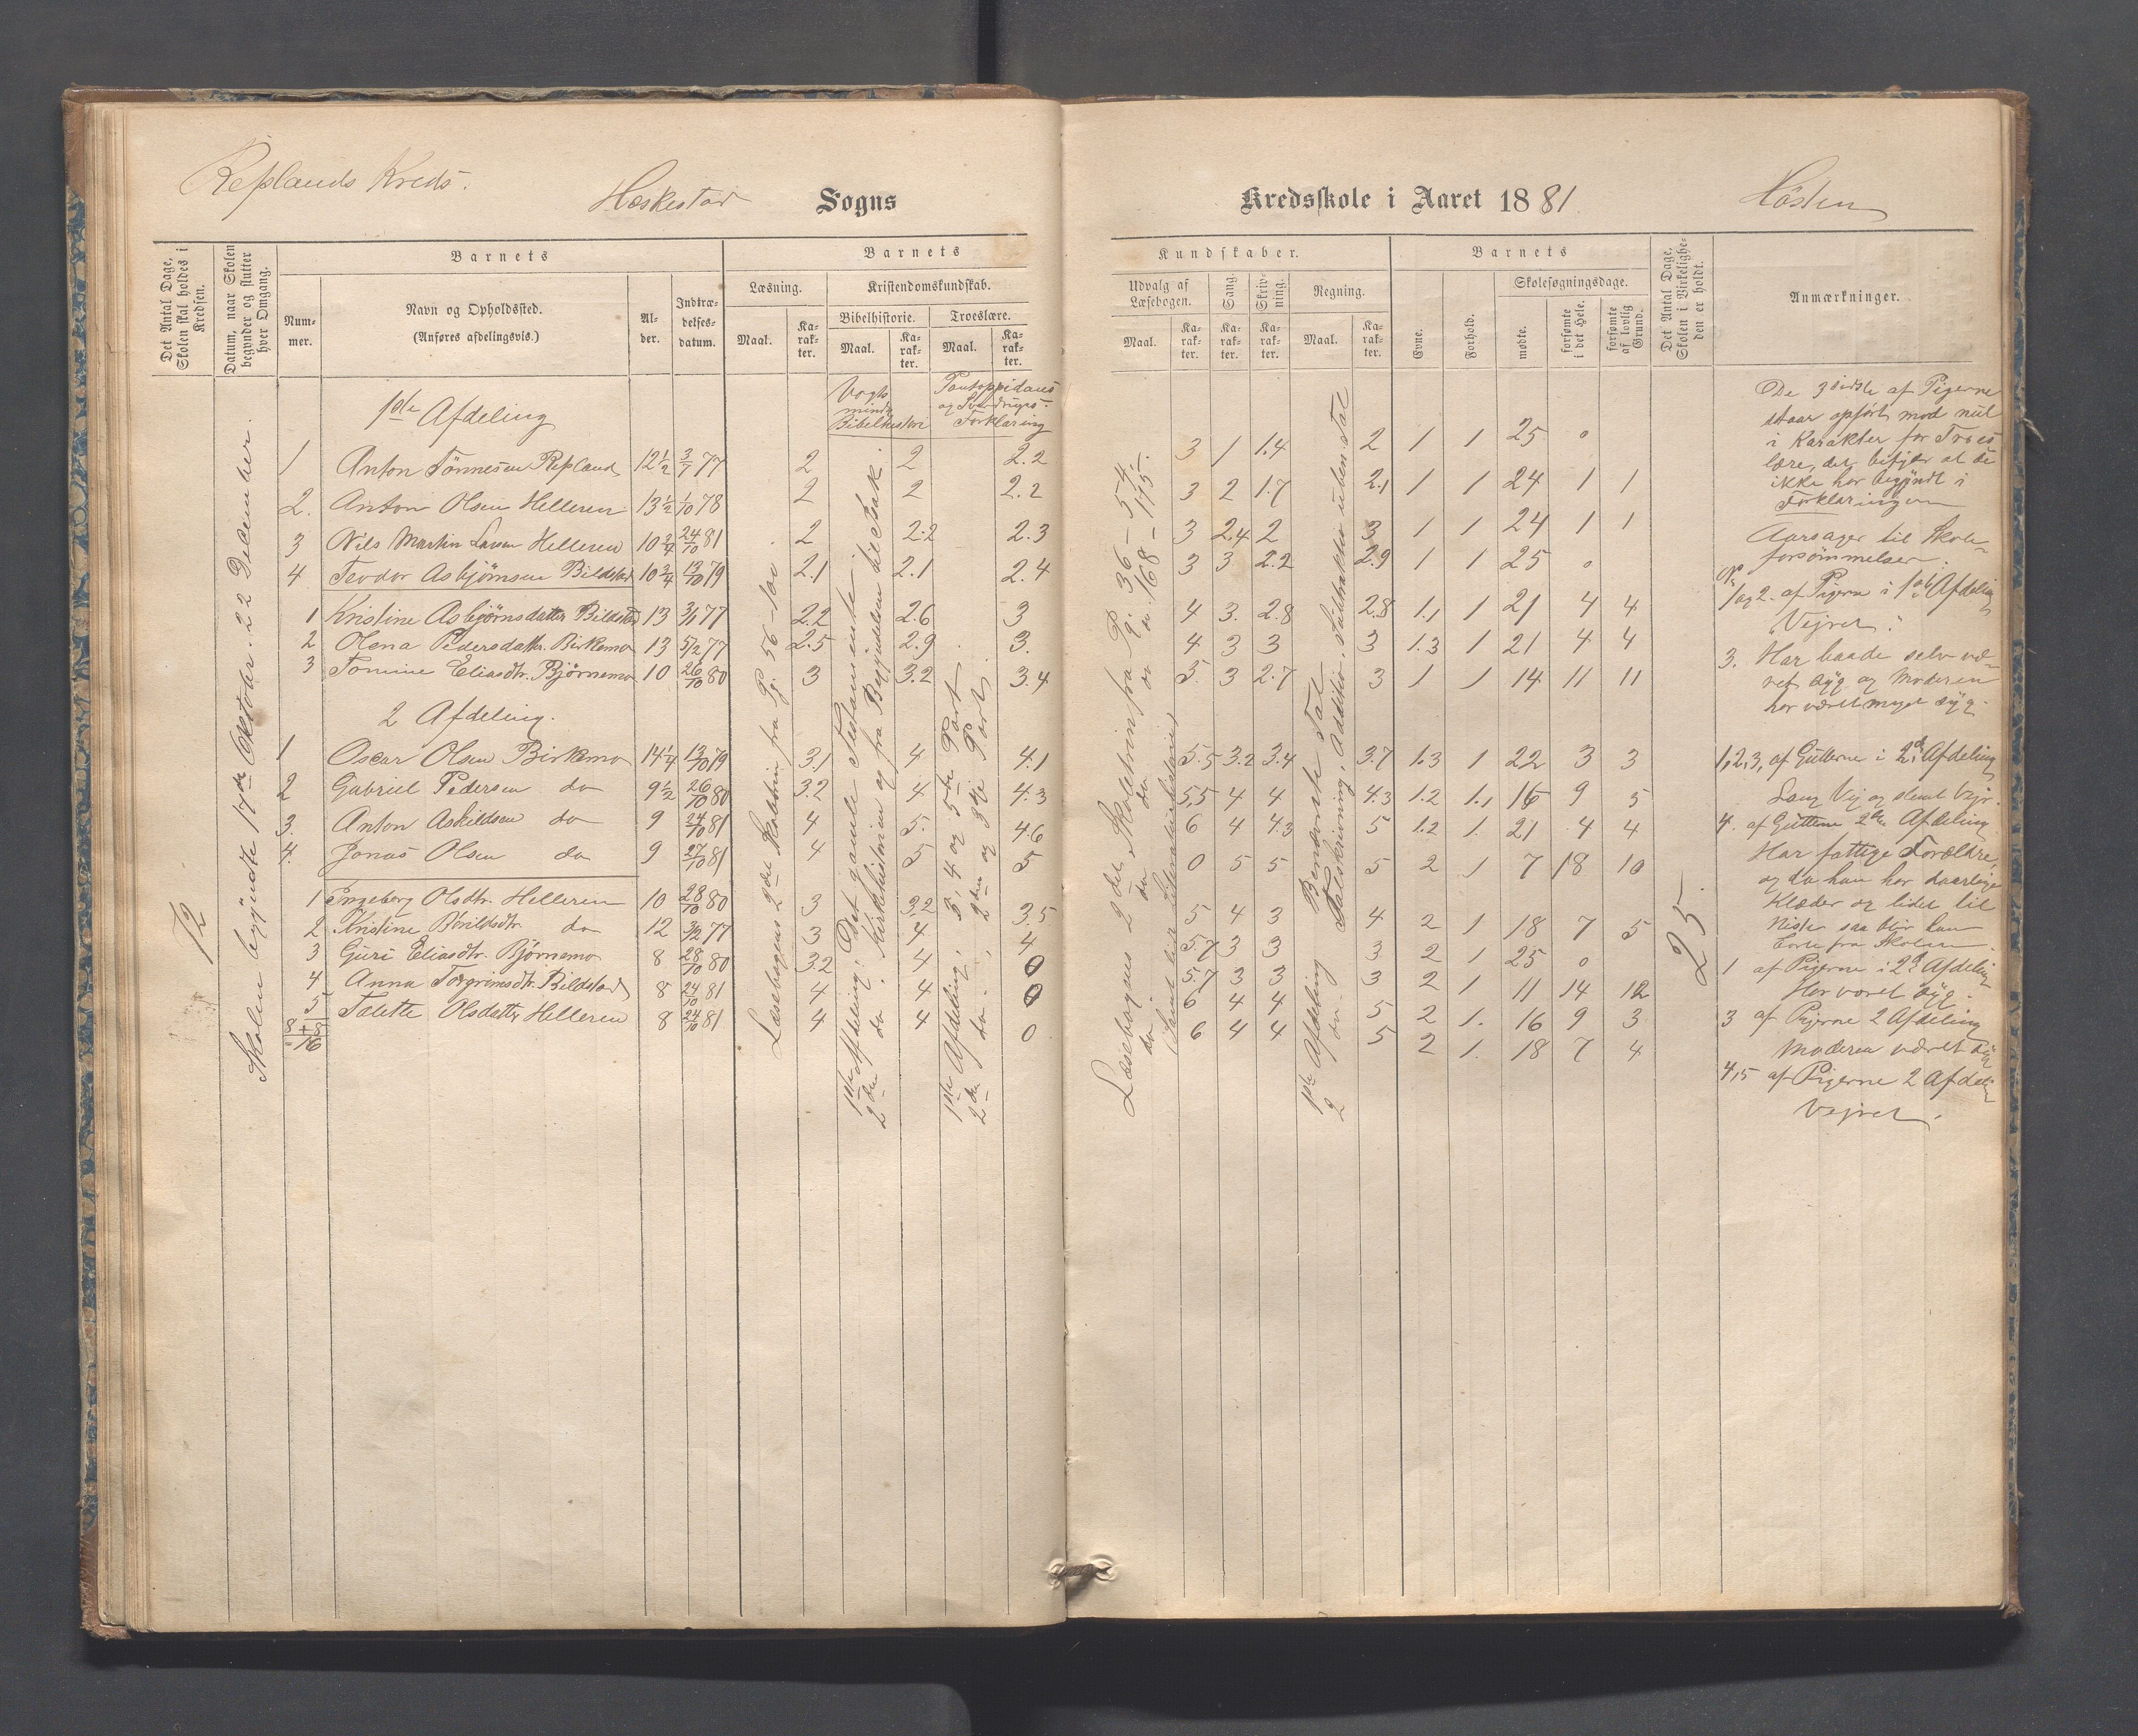 Replands Kreds.
Heskestad Sogns
Kredsskole i Aaret 1881.
Hösten
Det Antal Dage, Skolen skal holdes i Kredsen.
Datum, naar Skolen begynder og slutter hver Omgang.
Barnets
Nummer.
Navn og Opholdssted.
(Anføres afdelingsvis.)
Alder.
Indtrædelsesdatum.
Barnets
Læsning.
Maal.
Karakter.
Kristendomskundskab.
Bibelhistorie.
Maal.
Karakter.
Troeslære.
Maal.
Karakter.
Kundskaber.
Udvalg af Læsebogen.
Maal.
Karakter.
Sang.
Karakter.
Skrivning.
Karakter.
Regning.
Maal.
Karakter.
Barnets
Evne.
Forhold.
Skolesøgningsdage.
mødte.
forsømte i det Hele.
forsømte af lovlig Grund.
Det Antal Dage, Skolen i Virkeligheden er holdt.
Anmærkninger.
72
Skolen begyndte 17de Oktober. 22 December.
1ste Afdeling
Vogts mindre Bibelhistori
Pontoppidans og Sverdrups Forklaring
1 Anton Tönnesen Repland 12½ 3/7 77 2 2 2.2 3 1 1.4 2 1 1 25 0
2. Anton Olsen Helleren 13½ 1/10 78 2 2 2.2 3 2 1.7 2.1 1 1 24 1 1
3 Nils Martin Larsen Helleren 10¾ 24/10 81 2 2.2 2.3 3 2.4 2 3 1 1 24 1 1
4 Teodor Asbjørnsen Bildstad 10¾ 13/10 79 2.1 2.1 2.4 3 3 2.2 2.9 1 1 25 0
1 Kristine Asbjørnsdatter Bildstad 13 3/1 77 2.2 2.6 3 4 3. 2.8 2.8 1.1 1 21 4 4
2 Olena Pedersdattr. Birkemo 13 5/2 77 2.5 2.9 3. 4 3 3 3 1.3 1 21 4 4
3 Tomine Eliasdtr. Bjørnemo 10 26/10 80 3 3.2 3.4 5. 3 2.7 3 1 1 14 11 11
2 Afdeling.
1 Oscar Olsen Birkemo 14¼ 13/10 79 3.1 4 4.1 5.5 3.2 3.4 3.7 1.3 1 22 3 3
2 Gabriel Pedersen do 9½ 26/10 80 3.2 4 4.3 5,5 4 4 4.3 1.2 1.1 16 9 5
3. Anton Askildsen do 9 24/10 81 4 5. 4.6 6 4 4.3 5 1.2 1. 21 4 4
4. Jonas Olsen do 9 27/10 81 4 5 5 0 5 5 5 2 1 7 18 10
1 Ingeborg Olsdtr. Helleren 10 28/10 80 3 3.2 3.5 5 4 3 4 2 1 18 7 5
2 Kristine do 12 3/2 77 3 4 4 5.7 3 3 3 2 1 25 0
3 Guri Eliasdtr. Bjørnemo 8 28/10 80 3.2 4 0 5.7 3 3 3 2 1 11 14 12
4 Anna Torgrimsdtr. Bildstad 8 24/10 81 4 4 0 6 4 4 5 2 1. 16 9 3
5 Talette Olsdatter Helleren 8 24/10 81 4 4 0 6 4 4 5 2 1. 18 7 4
8 + 8
= 16
Læsebogens 2det Skoletrin fra Pg. 56 -
1ste Afdeling: Det gamle Testamente.
2den do. Kirkehistorien og fra Begyndelsen til Isak.
1ste Afdeling: 3, 4 og 5te Part
2den do. 2den og 3die Part.
Læsebogens 2det Skoletrin fra P. 36 - 54.
do do do " 168 - 175.
1ste Afdeling Benævnte Tal
2 do. Talskrivning, Addition, Subtraktion i uben. Tal
25
De 3 sidste af Pigerne
staar opført med nul
i Karakter for Troes
lære, det betyder at de
ikke har begyndt i
Forklaringen
Aarsager til Skole-
forsömmelser.
No 1 og 2. af Pigerne i 1ste Afdeling
"Vejret."
3. Har baade selv væ-
ret syg og Moderen
har været meget syg.
1, 2, 3, af Gutterne i 2den Afdeling
Lang Vej og slemt Vejr.
4. af Gutterne 2den Afdeling
Har fattige Forældre,
og da han har daarlige
Klæder og lidet til
Niste saa blir han
borte fra Skolen.
1 af Pigerne i 2den Afdeling
Har været syg.
3 af Pigerne 2 Afdeling
Moderen været syg
4,5 af Pigerne 2 Afdeling
Vejret.